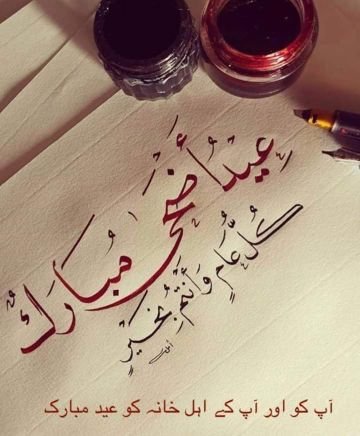 عِيدُ أَضْحَى مُبَارَك
كُلُّ عَامٍ وَأَنْتُمْ بِخَيْرٍ
آپ کو اور آپ کے اہل خانہ کو عید مبارک